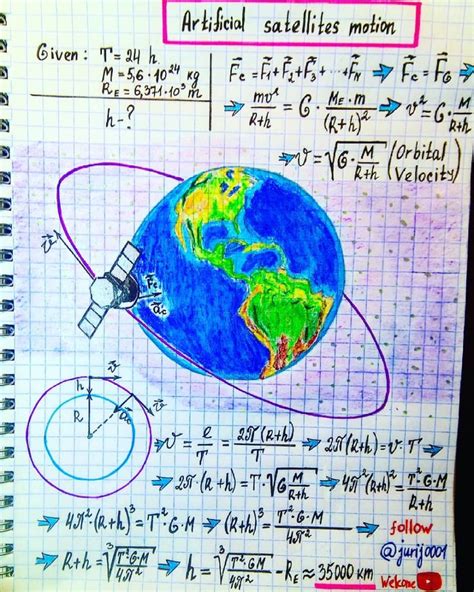 Artificial satellites motion
Given: T = 24 h
M = 5,6·10²⁴ kg
R_E = 6,371·10³ m
h-?
F⃗_c = F⃗₁ + F⃗₂ + F⃗₃ + ... + F⃗_N ⇒ F⃗_c = F⃗_G ⇒
⇒ mv²/(R+h) = G · M_E·m/(R+h)² ⇒ v² = G· M/(R+h)
⇒ v = √(G· M/(R+h)) (Orbital Velocity)
v⃗
F⃗_c
a⃗_c
v⃗
h
R
a⃗_c
v⃗
⇒ v = l/T = 2π(R+h)/T ⇒ 2π(R+h) = v·T ⇒
⇒ 2π·(R+h) = T·√(G M/(R+h)) ⇒ 4π²(R+h)² = T²·G·M/(R+h)
⇒ 4π²·(R+h)³ = T²·G·M ⇒ (R+h)³ = T²·G·M/4π² ⇒
⇒ R+h = ³√(T²·G·M/4π²) ⇒ h = ³√(T²·GM/4π²) - R_E ≈ 35000 km
follow
@jurij0001
Welcome